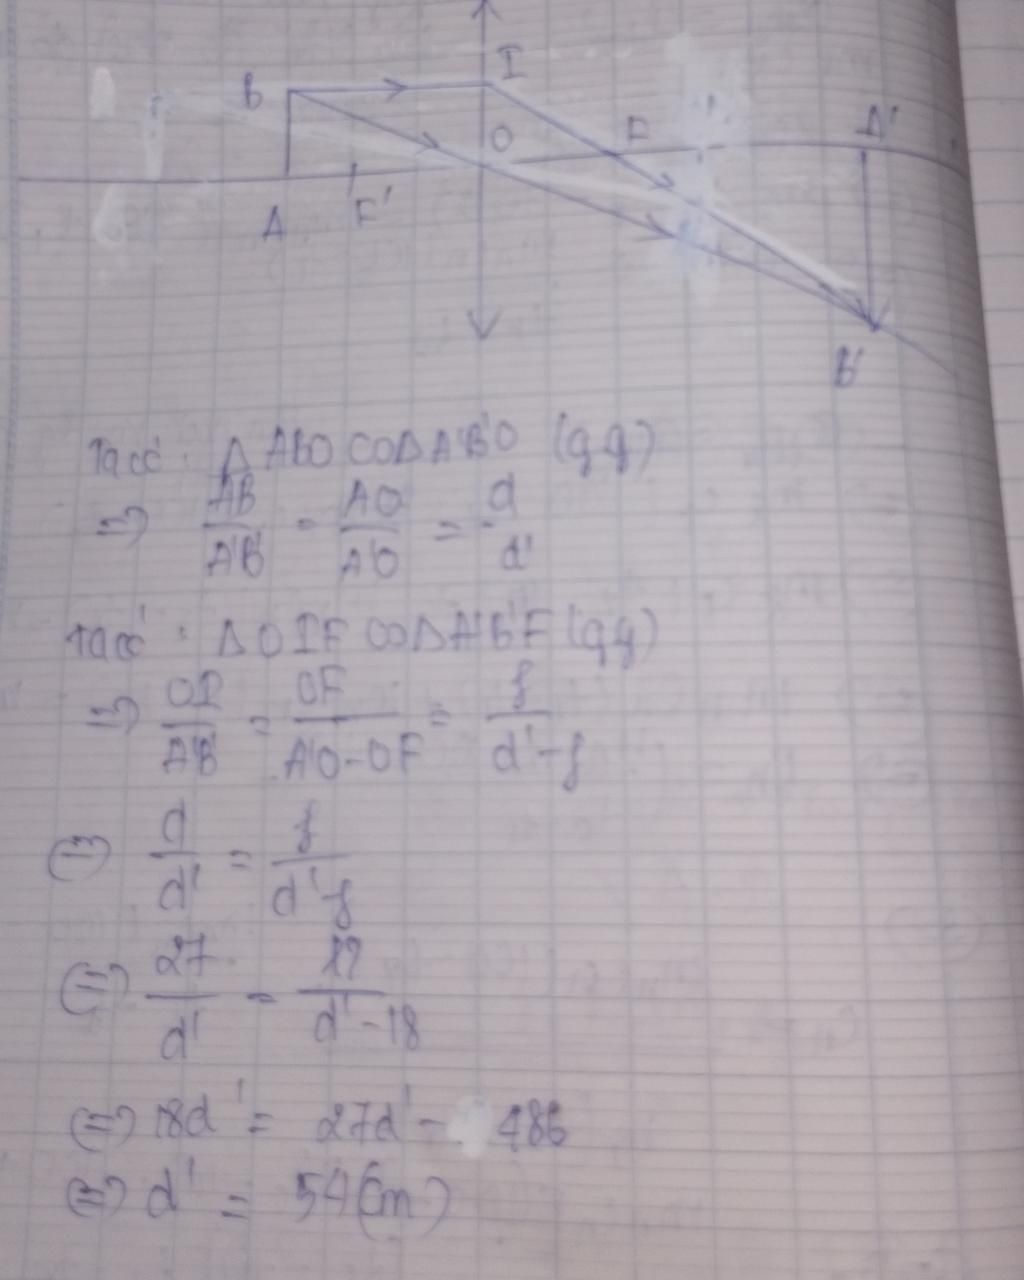 B
I
O
F
A'
A
F'
B'
Ta có: Δ ABO ∽ Δ A'B'O (g.g)
=> AB/A'B' = AO/A'O = d/d'
Ta có: Δ OIF ∽ Δ A'B'F (g.g)
=> OI/A'B' = OF/A'O-OF = f/d'-f
(=) d/d' = f/d'-f
(=) 27/d' = 18/d'-18
(=) 18d' = 27d' - 486
(=) d' = 54(cm)